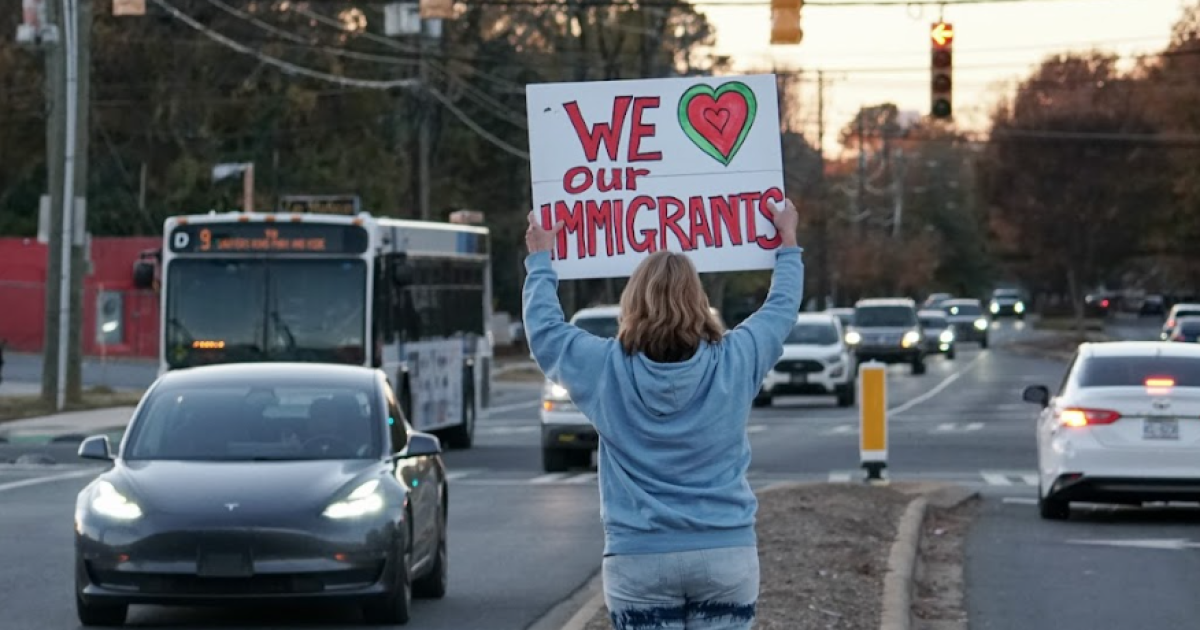 WE
our
IMMIGRANTS
D 9